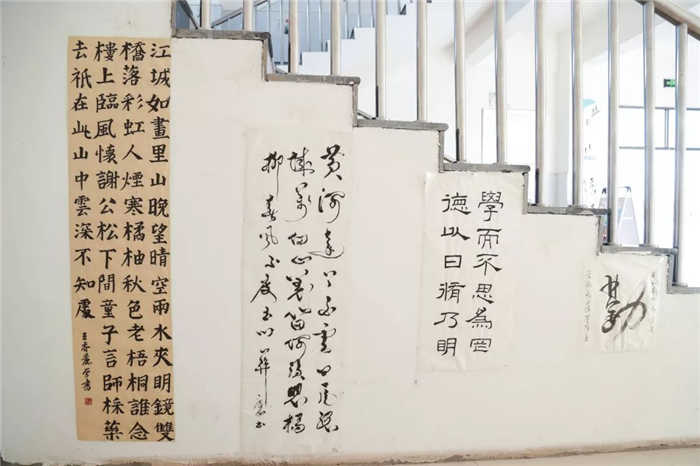 江城如畫里山晚望晴空雨水夾明鏡雙
橋落彩虹人煙寒橘柚秋色老梧桐誰念
樓上臨風懷謝公松下問童子言師採藥
去祇在此山中雲深不知處
黄河遠上白雲間一片孤
城萬仞山羌笛何須怨楊
柳春風不度玉門關
學而不思為罔
德以日脩乃明
勤